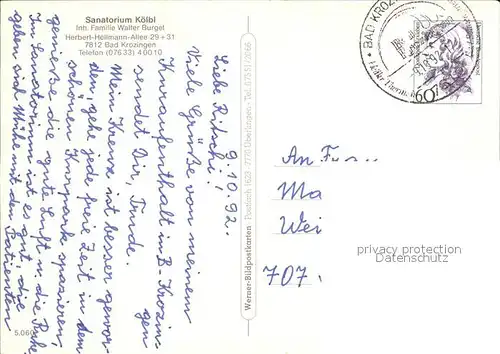 Sanatorium Kölbl
Inh. Familie Walter Burget
Herbert-Hellmann-Allee 29+31
7812 Bad Krozingen
Telefon (07633) 40010
9.10.92.
Liebe Ritschi!
Viele Grüße von meinem
Kuraufenthalt in B-Krozin-
gen
sendet Dir, Trude.
Mein Kreuz ist besser gewor-
den, gehe jede freie Zeit in dem
schönen Kurpark spazieren,
genieße die gute Luft u. die Ruhe,
im Sanatorium ist es gut, die
geben sich Mühe mit den
Patienten
Werner-Bildpostkarten
Postfach 1620
7770 Überlingen
BAD KROZ
60
An
Ma
Wei
707
privacy protection
Datenschutz